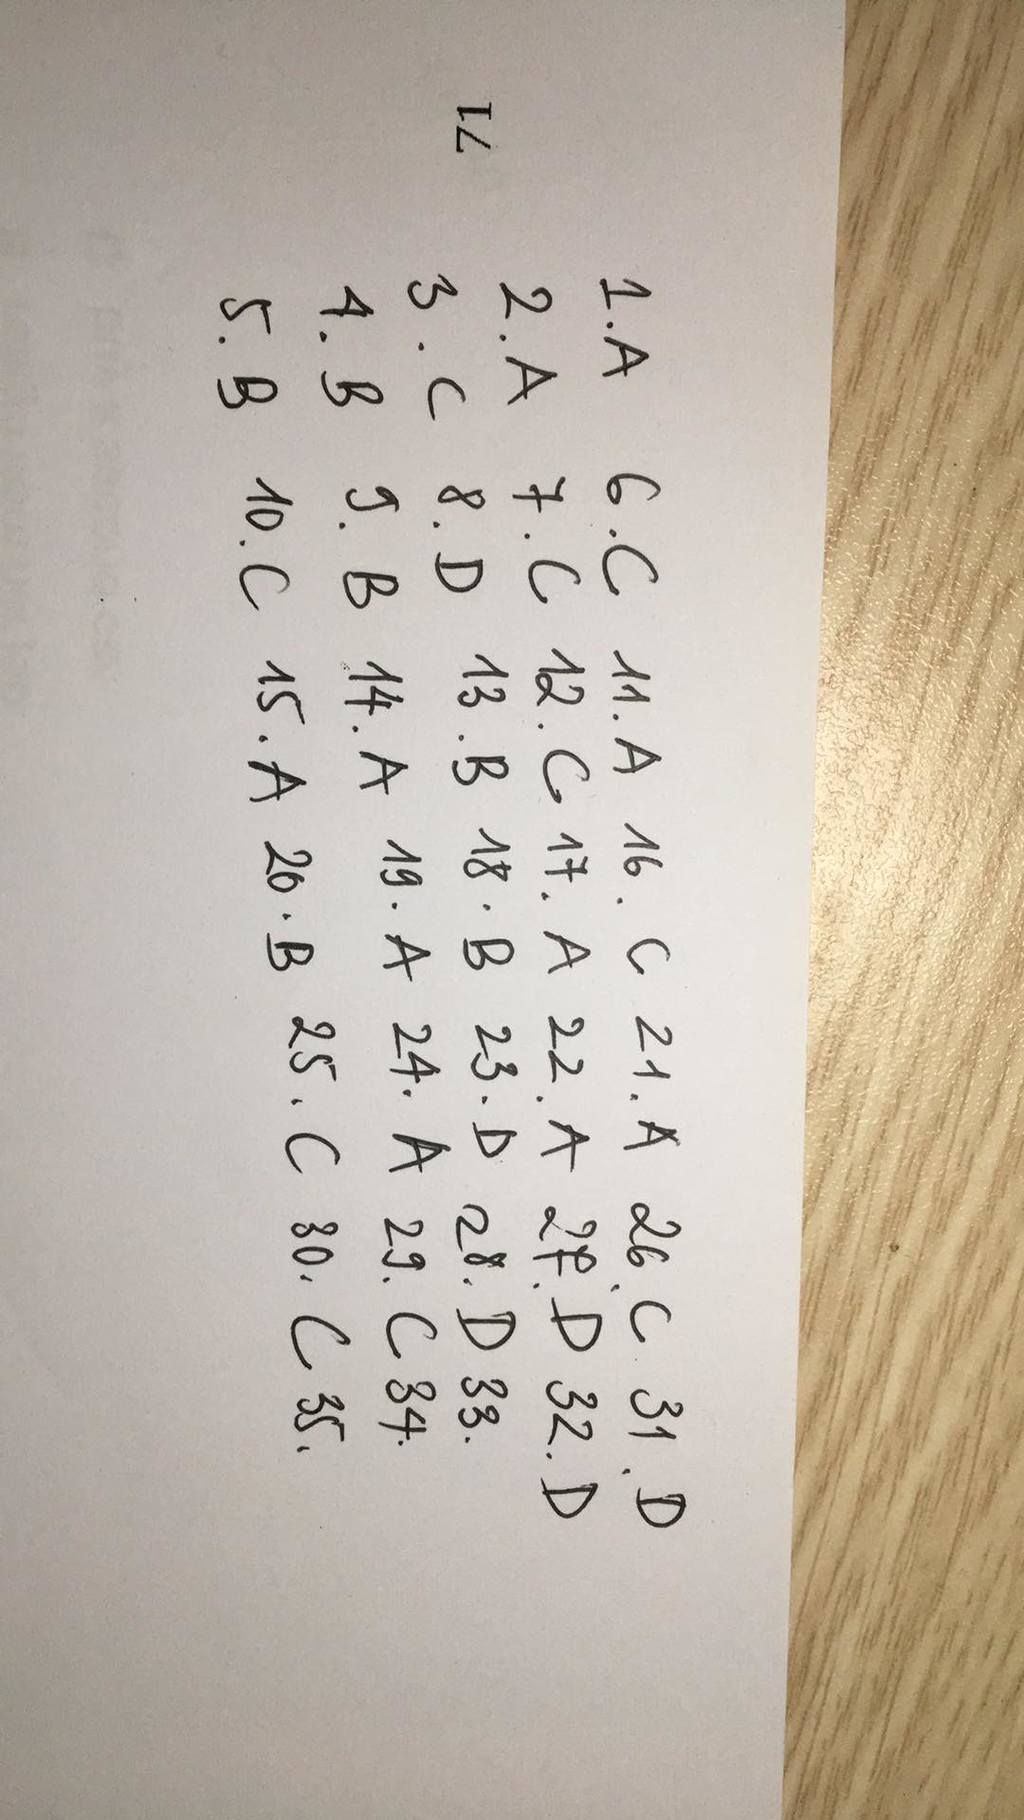 1.A 6.C 11.A 16.C 21.A 26.C 31.D
2.A 7.C 12.C 17.A 22.A 27.D 32.D
3.C 8.D 13.B 18.B 23.D 28.D 33.
4.B 9.B 14.A 19.A 24.A 29.C 34.
5.B 10.C 15.A 20.B 25.C 30.C 35.